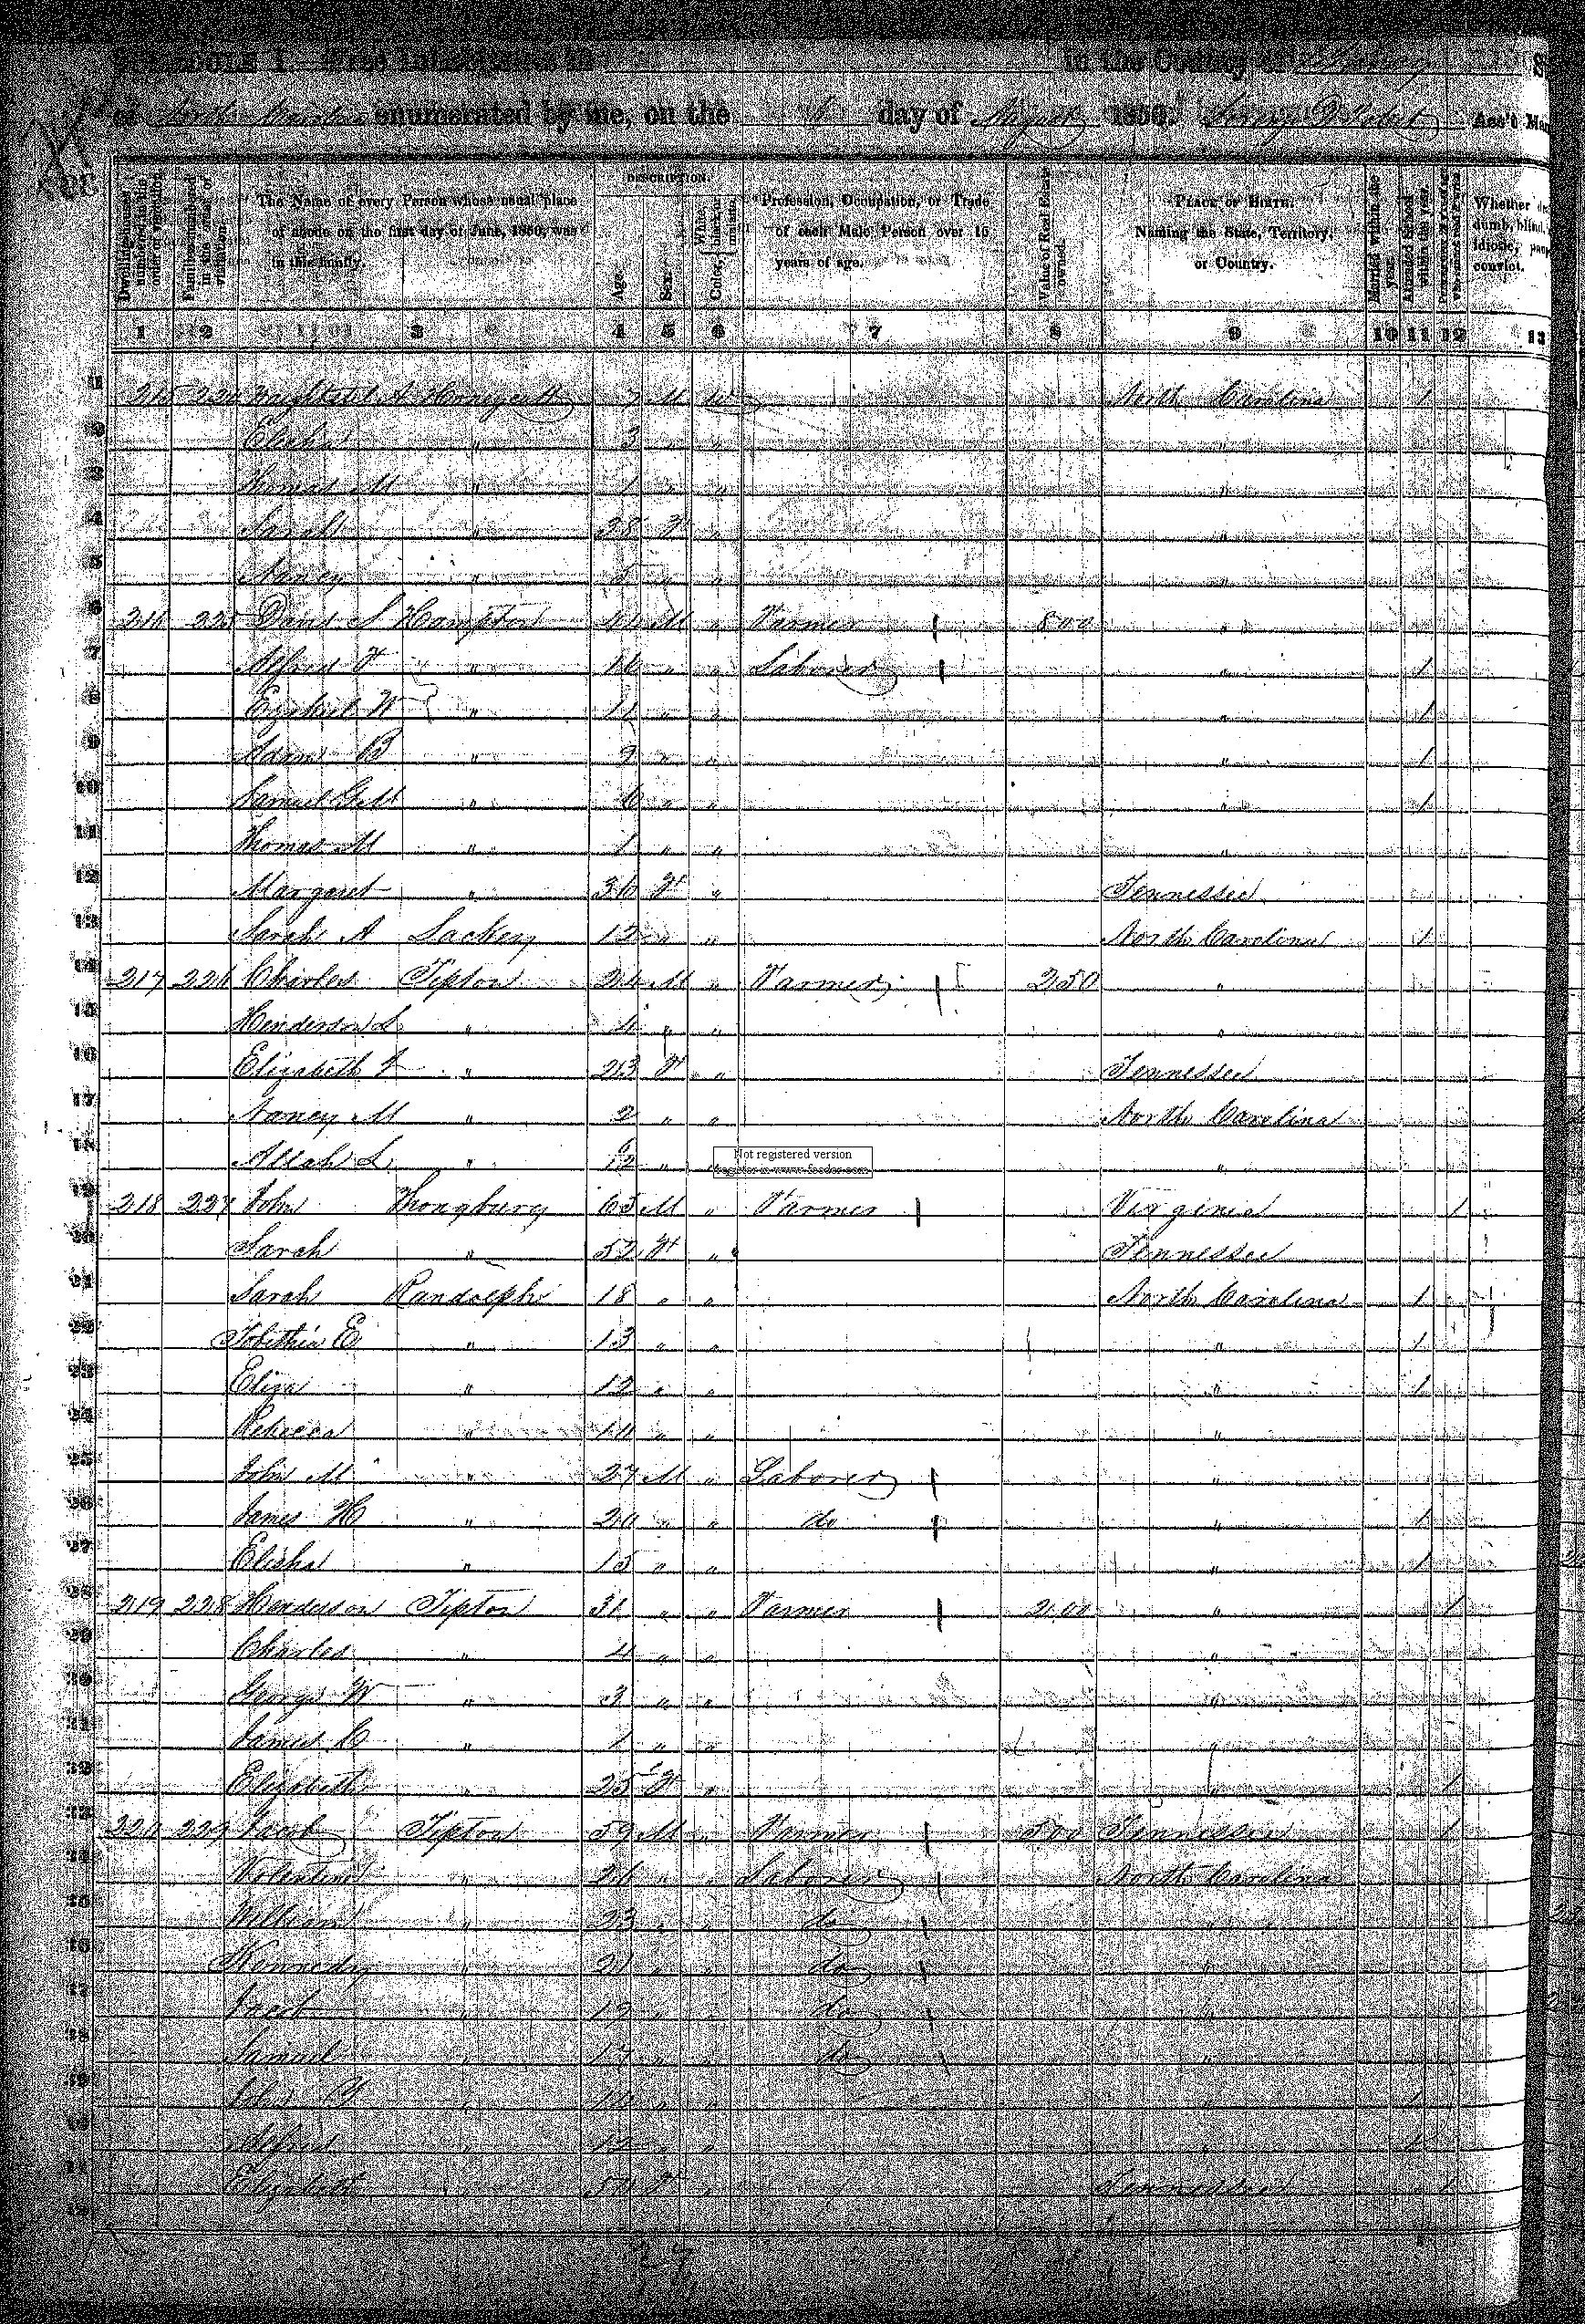 SCHEDULE I.—Free Inhabitants in in the County of
of North Carolina enumerated by me, on the day of August 1850. Ass't Mar
DESCRIPTION.
Dwelling-houses numbered in the order of visitation.
Families numbered in the order of visitation.
The Name of every Person whose usual place of abode on the first day of June, 1850, was in this family.
Age.
Sex.
Color, White, black, or mulatto.
Profession, Occupation, or Trade of each Male Person over 15 years of age.
Value of Real Estate owned.
PLACE OF BIRTH. Naming the State, Territory, or Country.
Married within the year.
Attended School within the year.
Whether dumb, blind, idiotic, convict.
1 2 3 4 5 6 7 8 9 10 11 12 13
1 215 A 7 M W North Carolina 1
2 Elisha " 3 " " "
3 Thomas M " 1 " " "
4 Sarah " 28 F " "
5 Nancy " 5 " " "
6 216 225 David S Hampton 41 M " Farmer 800 "
7 Alfred F " 16 " " Laborer " 1
8 Ezekiel W " 11 " " " 1
9 Adam B " 9 " " " 1
10 Samuel G M " 6 " " " 1
11 Thomas M " 1 " " "
12 Margaret " 36 F " Tennessee
13 Sarah A Lackey 12 " " North Carolina 1
14 217 226 Charles Tipton 24 M " Farmer 250 "
15 Henderson L " 4 " " "
16 Elizabeth " 23 F " Tennessee
17 Nancy M " 2 " " North Carolina
18 L " 9/12 " " "
Not registered version
19 218 227 John Thongburg 65 M " Farmer Virginia 1
20 Sarah " 52 F " Tennessee
21 Sarah Randolph 18 " " North Carolina 1
22 Tobithia E " 13 " " " 1
23 Eliza " 12 " " " 1
24 Rebecca " 10 " " "
25 John M " 27 M " Laborer "
26 James H " 20 " " do " 1
27 Elisha " 15 " " " 1
28 219 228 Henderson Tipton 31 " " Farmer 200 " 1
29 Charles " 4 " " "
30 George W " 3 " " "
31 James C " 1 " " "
32 Elizabeth " 25 F " " 1
33 220 229 Jacob Tipton 59 M " Farmer 500 Tennessee 1
34 Volentine " 26 " " Laborer North Carolina
35 William " 23 " " do "
36 Kennedy " 21 " " do "
37 " 19 " " do "
38 Samuel " 17 " " do "
39 John " 14 " " " 1
40 Alfred " 12 " " " 1
41 Elizabeth " 50 F " Tennessee 1
42